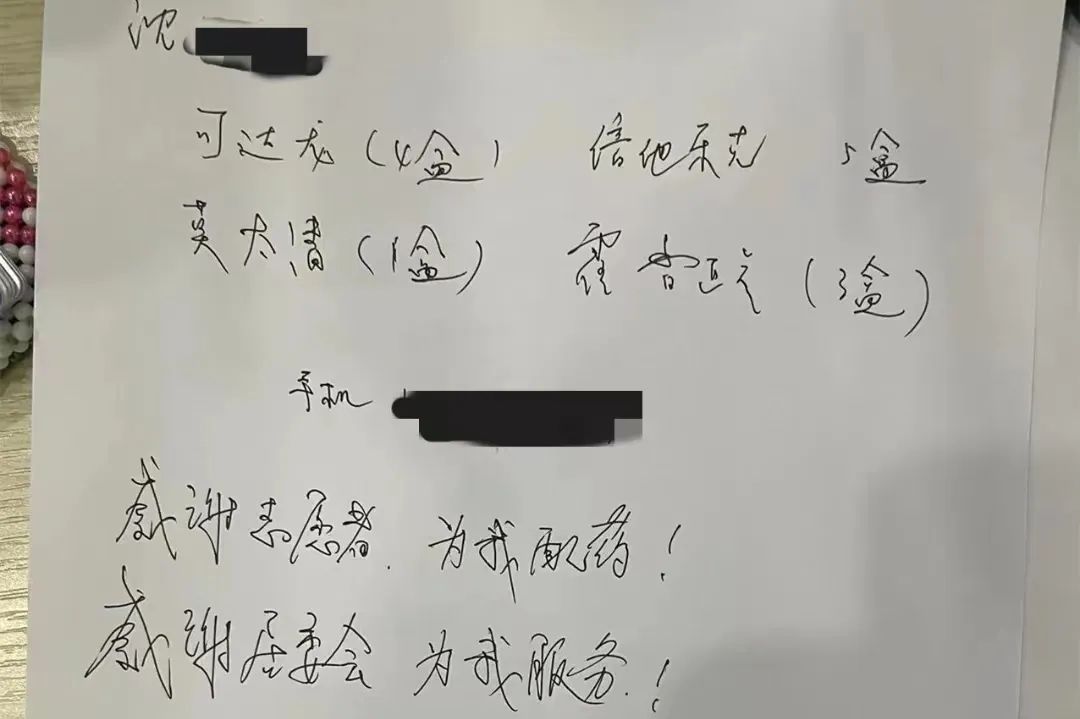 沈
可达龙(4盒) 倍他乐克 5盒
英太清(1盒) (3盒)
手机
感谢志愿者 为我配药!
感谢居委会 为我服务!